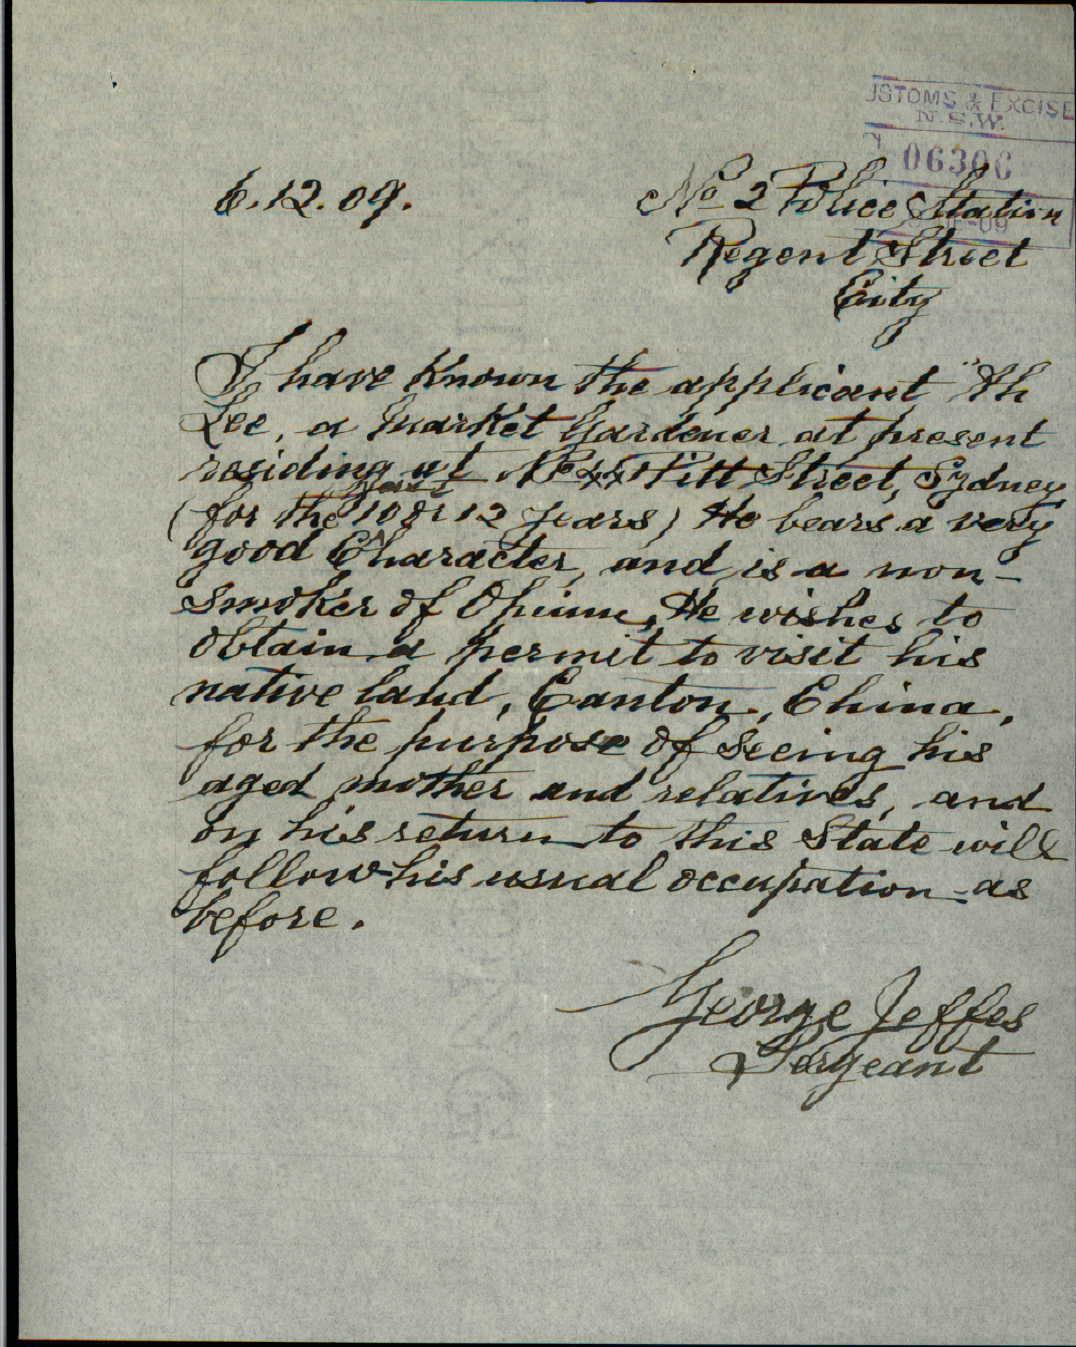 USTOMS & EXCISE
N.S.W.
06306
6.12.09.
No 2 Police Station
Regent Street
City
I have known the applicant "Ah
Lee, a market Gardener at present
residing at Pitt Street, Sydney
past
(for the 10 or 12 years) He bears a very
good Character, and is a non-
smoker of Opium, He wishes to
obtain a permit to visit his
native land, Canton, China,
for the purpose of seeing his
aged mother and relatives, and
on his return to this State will
follow his usual occupation as
before.
George Jeffes
Sergeant